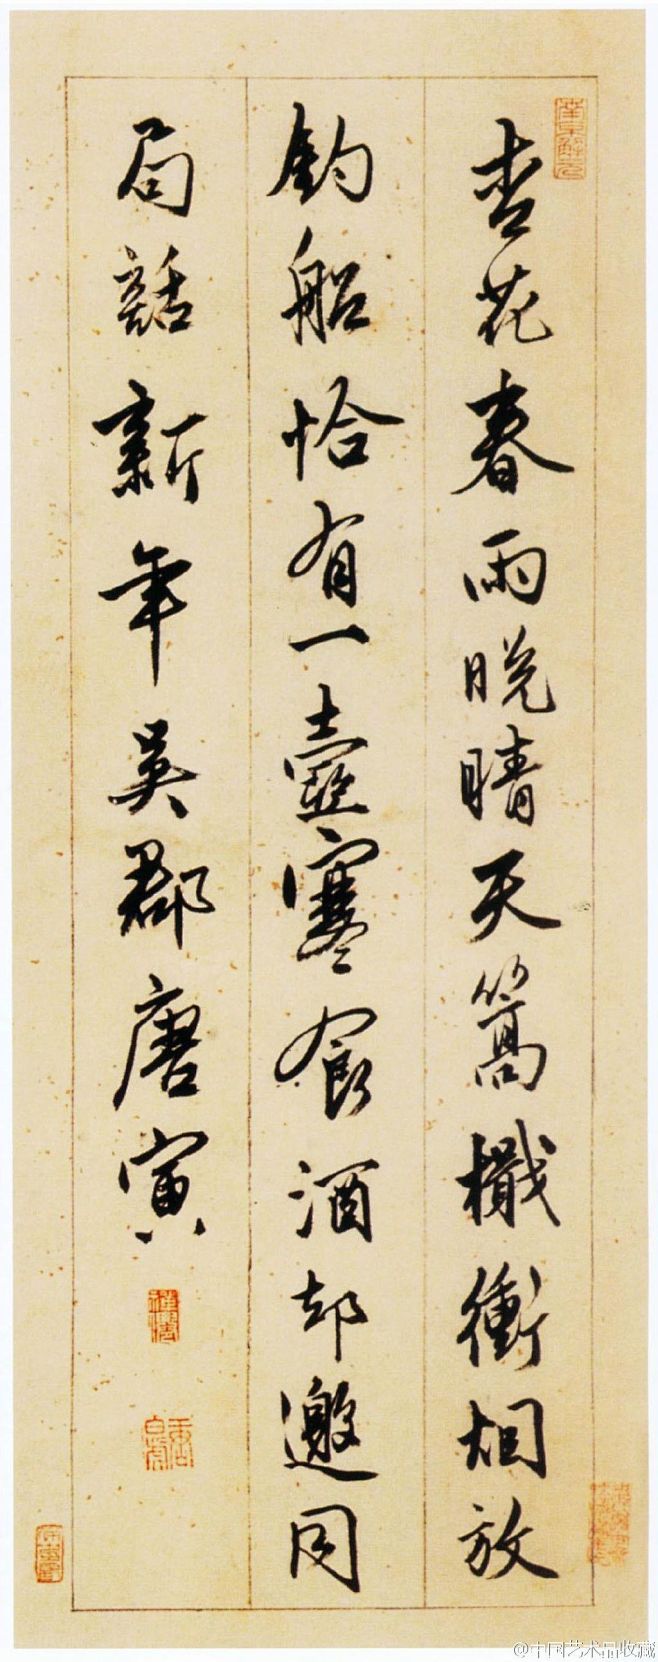 杏花春雨晚晴天篙檝衝烟放
釣船恰有一壺寒食酒却邀同
局話新年吳郡唐寅
南京解元
@中国艺术品收藏